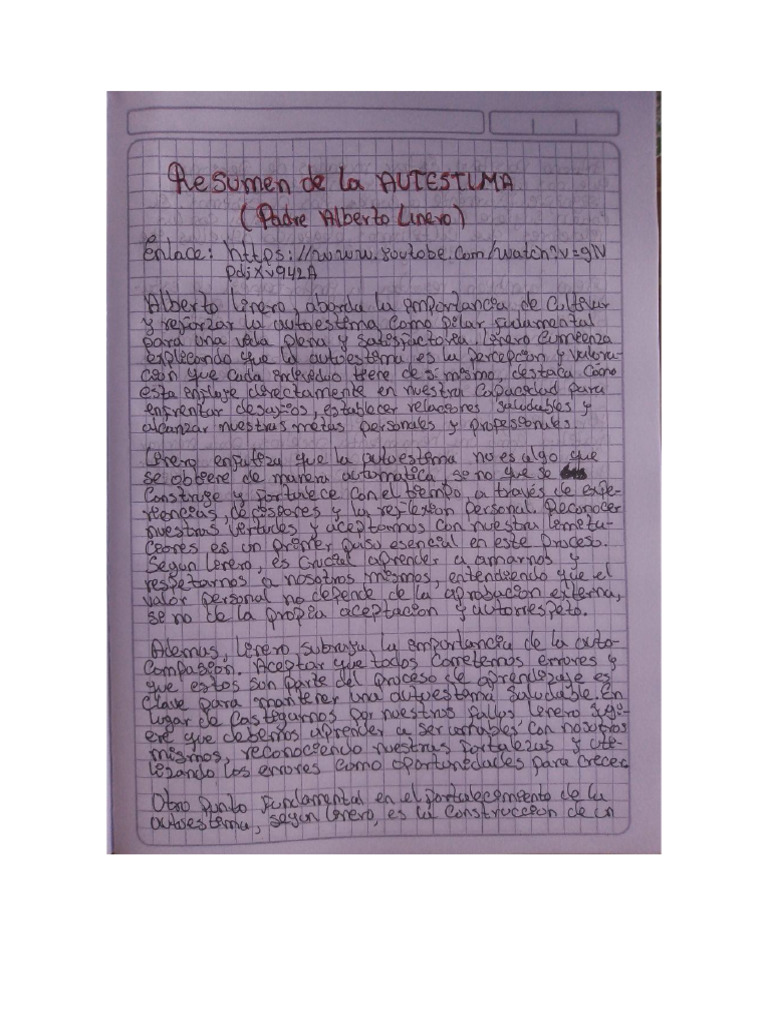 Resumen de la AUTESTIMA
(Padre Alberto Linero)
Enlace: https://www.youtube.com/watch?v=gN
pdjXv942A
Alberto Linero, aborda la importancia de cultivar
y reforzar la autoestima como pilar fudamental
para una vida plena y satisfactoria. Linero comienza
explicando que la autoestima es la percepcion y valora-
ción que cada individuo tiene de si mismo, destaca como
esta influye directamente en nuestra capacidad para
enfrentar desafios, establecer relaciones saludables y
alcanzar nuestras metas personales y profesionales.
Linero enfatiza que la autoestima no es algo que
se obtiene de manera automatica, se no que se
construye y fortalece con el tiempo, a través de expe-
riencias, decisiones y la reflexion personal. Reconocer
nuestras virtudes y aceptarnos con nuestra limita-
ciones es un primer paso esencial en este proceso.
Segun Linero, es crucial aprender a amarnos y
respetarnos a nosotros mismos, entendiendo que el
valor personal no depende de la aprobacion externa,
se no de la propia aceptacion y autorrespeto.
Ademas, Linero subraya, la importancia de la auto-
compasión. Aceptar que todos cometemos errores y
que estos son parte del proceso de aprendizaje es
clave para mantener una autoestima saludable. En
lugar de castigarnos por nuestros fallos Linero sugi-
ere que debemos aprender a ser amables con nosotros
mismos, reconociendo nuestras fortalezas y uti-
lizando los errores como oportunidades para crecer
Otro punto fundamental en el fortalecimiento de la
autoestima, segun Linero, es la construccion de un